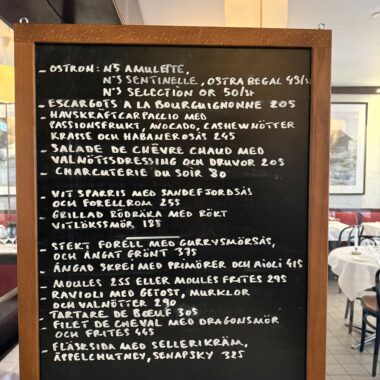 - OSTRON: N°5 AMULETTE,
N°3 SENTINELLE, OSTRA REGAL 45/ST
N°3 SELECTION OR 50/ST
- ESCARGOTS A LA BOURGUIGNONNE 205
- HAVSKRÄFTCARPACCIO MED
PASSIONSFRUKT, AVOCADO, CASHEWNÖTTER
KRASSE OCH HABANEROSÅS 245
- SALADE DE CHÈVRE CHAUD MED
VALNÖTTSDRESSING OCH DRUVOR 205
- CHARCUTERIE DU SOIR 80
- VIT SPARRIS MED SANDEFJORDSÅS
OCH FORELLROM 255
- GRILLAD RÖDRÄKA MED RÖKT
VITLÖKSSMÖR 185
- STEKT FORELL MED CURRYSMÖRSÅS,
OCH ÅNGAT GRÖNT 375
- ÅNGAD SKREI MED PRIMÖRER OCH AIOLI 415
- MOULES 255 ELLER MOULES FRITES 295
- RAVIOLI MED GETOST, MURKLOR
OCH VALNÖTTER 290
- TARTARE DE BŒUF 305
- FILET DE CHEVAL MED DRAGONSMÖR
OCH FRITES 445
- FLÄSKSIDA MED SELLERIKRÄM,
ÄPPELCHUTNEY, SENAPSKY 325